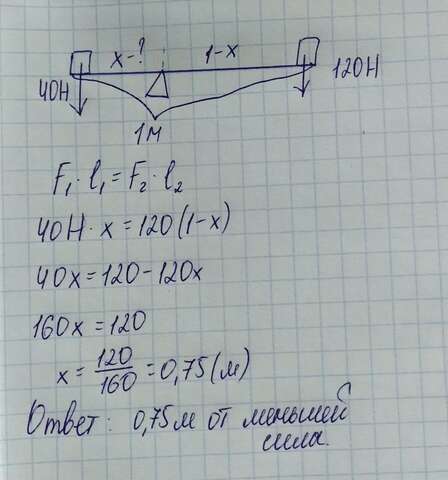 x-? 1-x
40Н 120Н
1м
F₁·l₁=F₂·l₂
40Н·x=120(1-x)
40x=120-120x
160x=120
x=120/160=0,75(м)
Ответ: 0,75м от меньшей
сила.